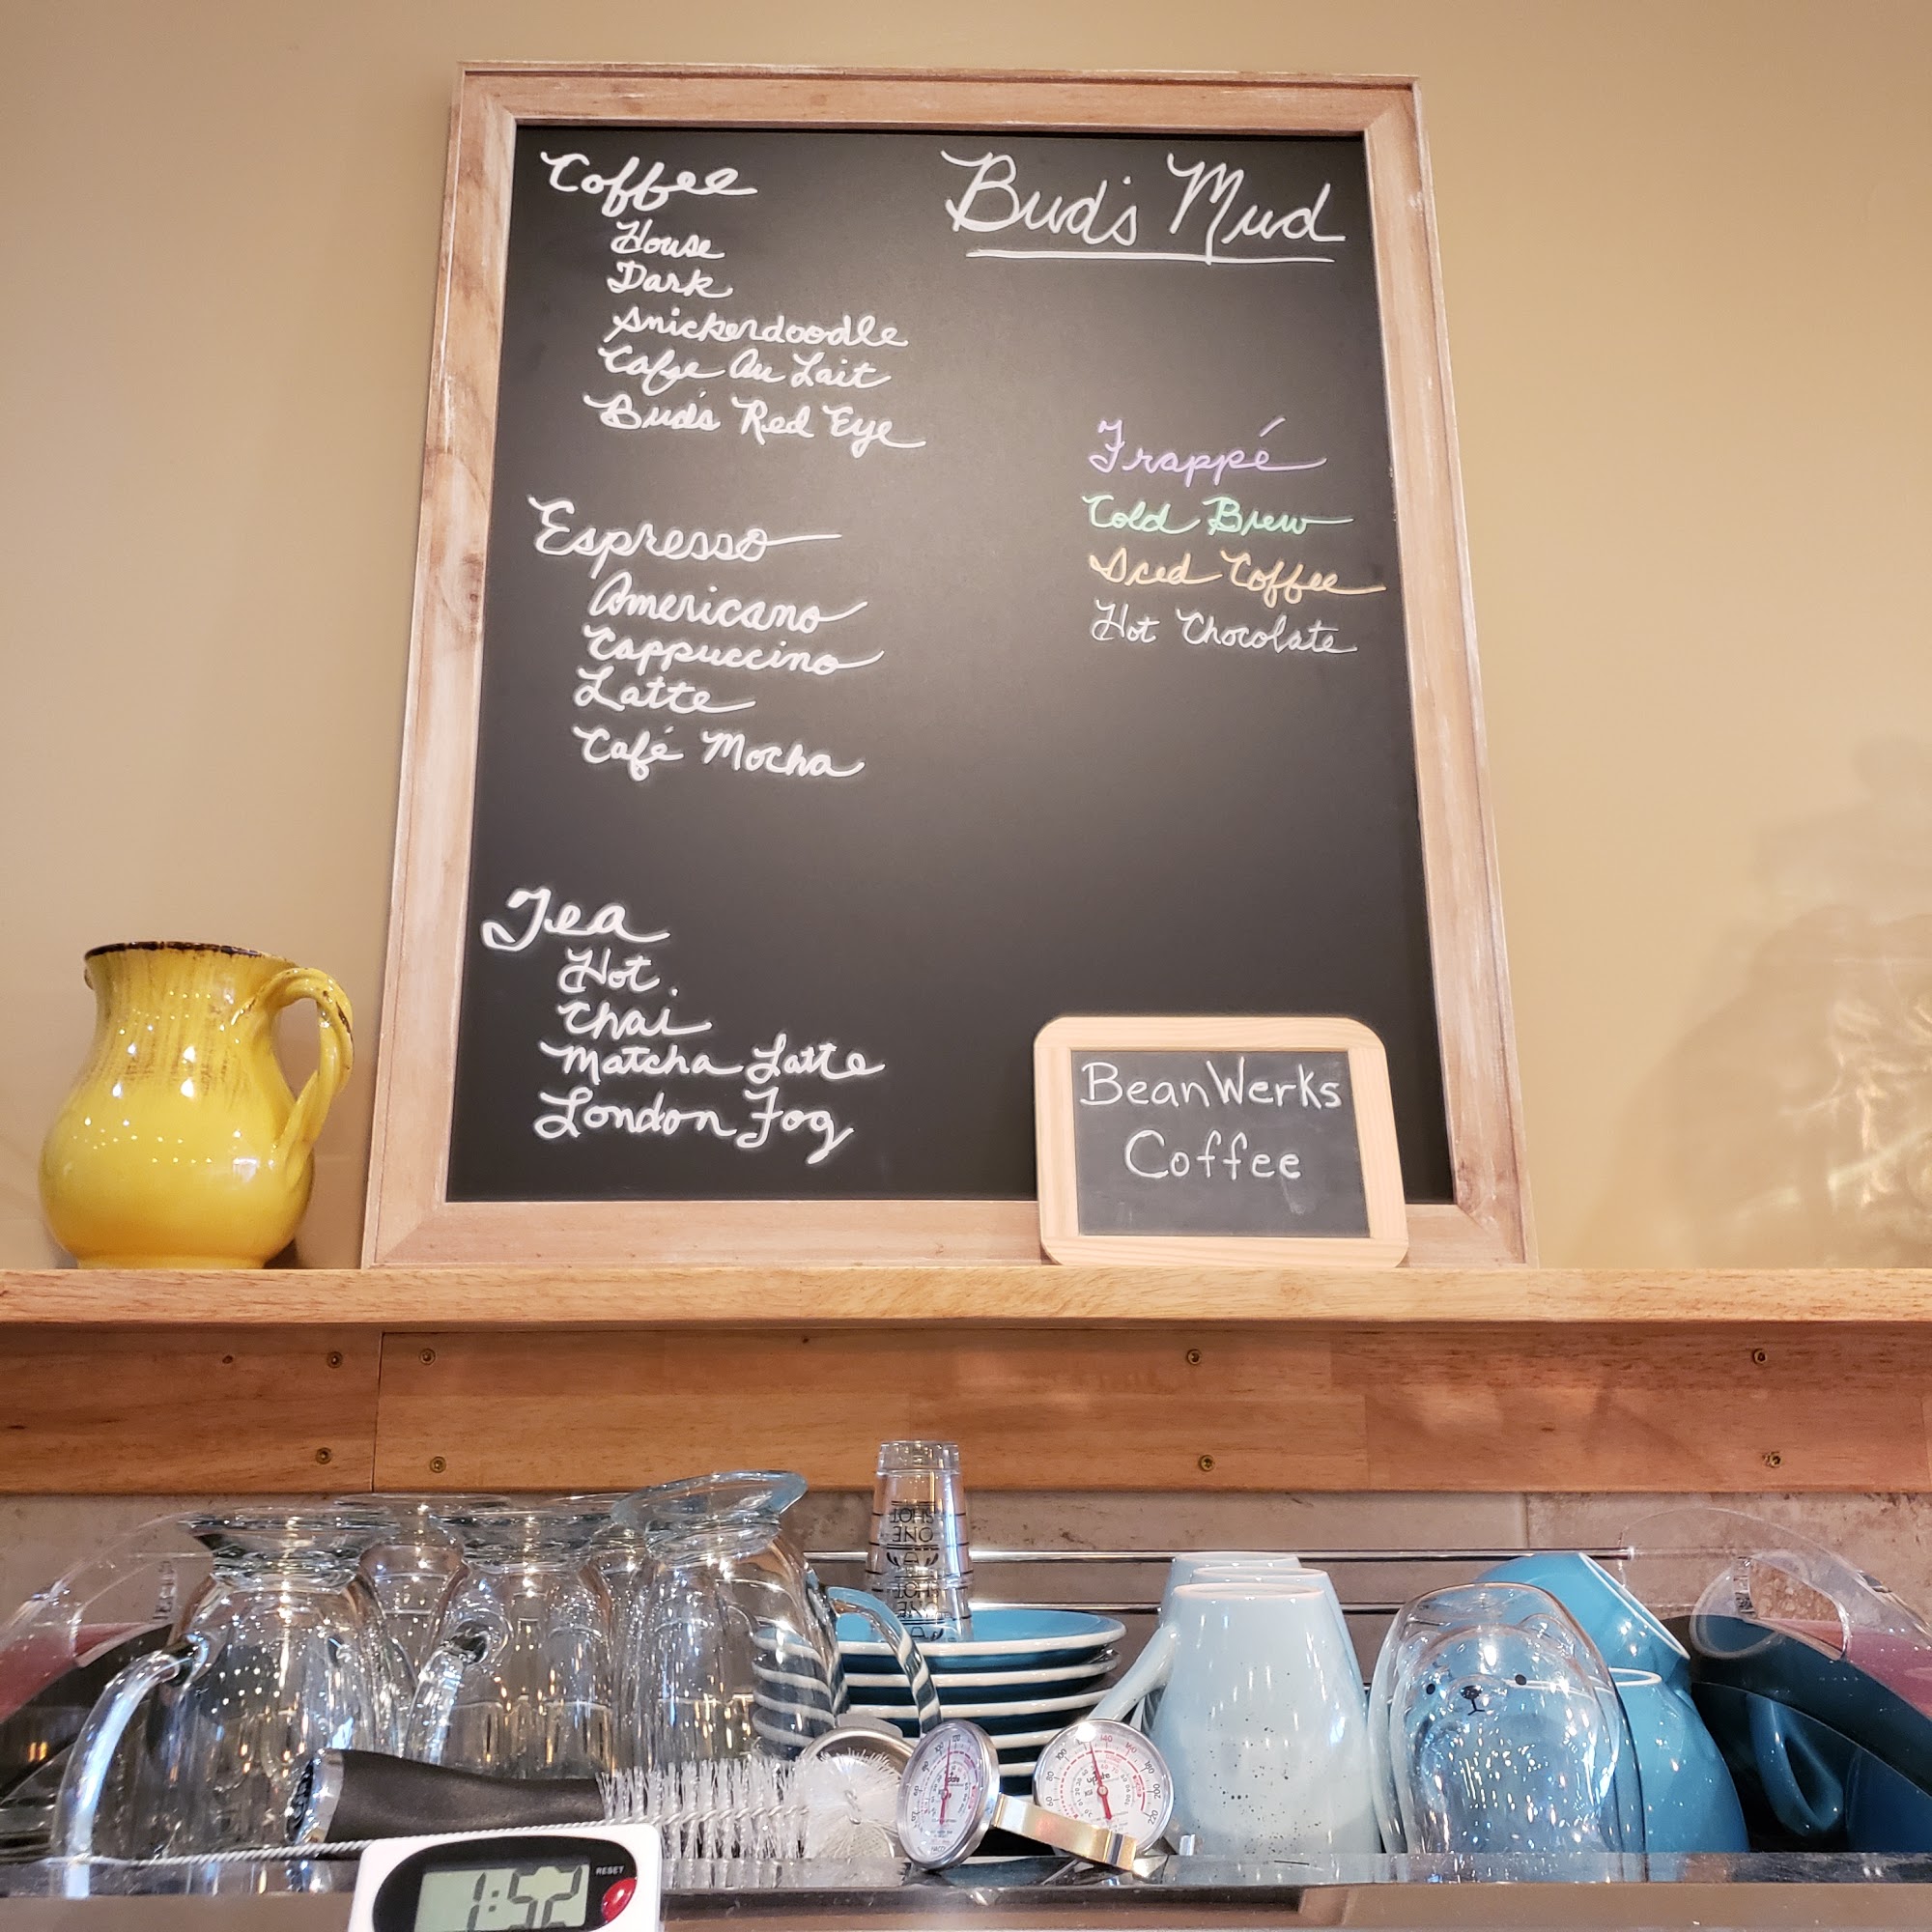 Coffee
House
Dark
Snickerdoodle
Cafe Au Lait
Bud's Red Eye
Espresso
Americano
Cappuccino
Latte
Café Mocha
Tea
Hot
Chai
Matcha Latte
London Fog
Bud's Mud
Frappé
Cold Brew
Iced Coffee
Hot Chocolate
BeanWerks
Coffee
ONE
SHOT
1:52
RESET